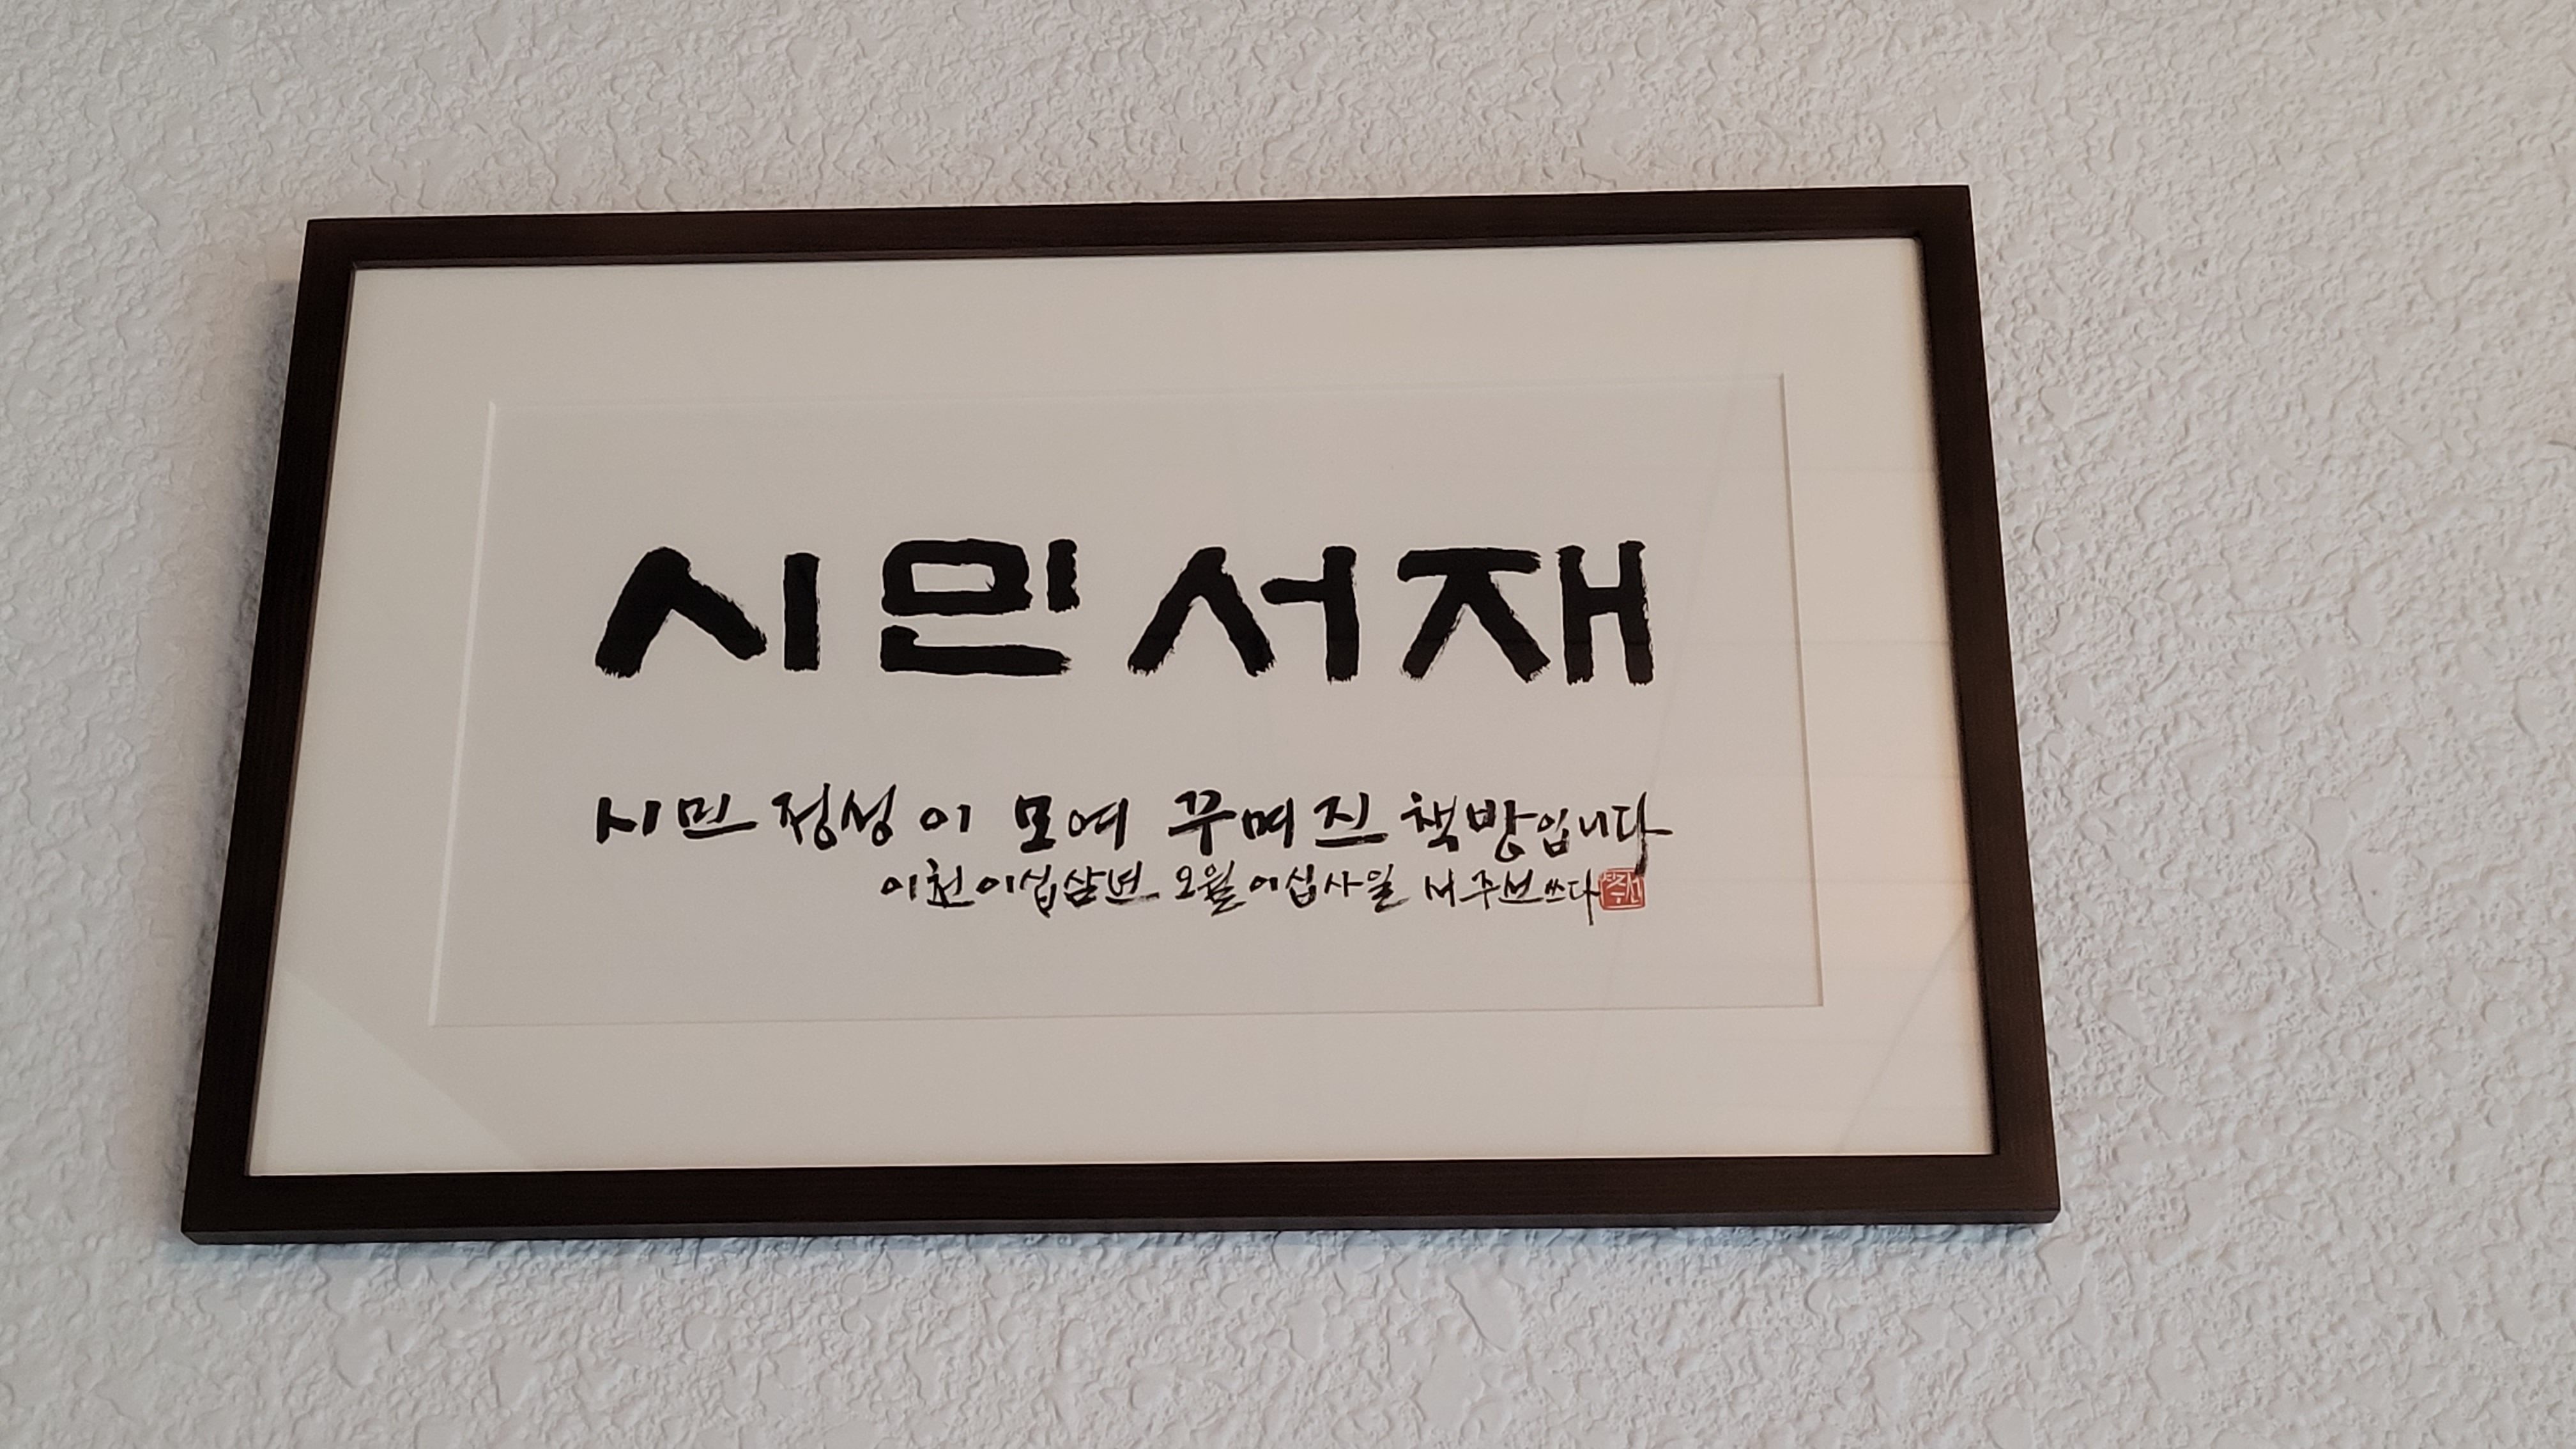 시민서재
시민 정성이 모여 꾸며진 책방입니다
이천이십삼년 오월 이십사일 서주선 쓰다